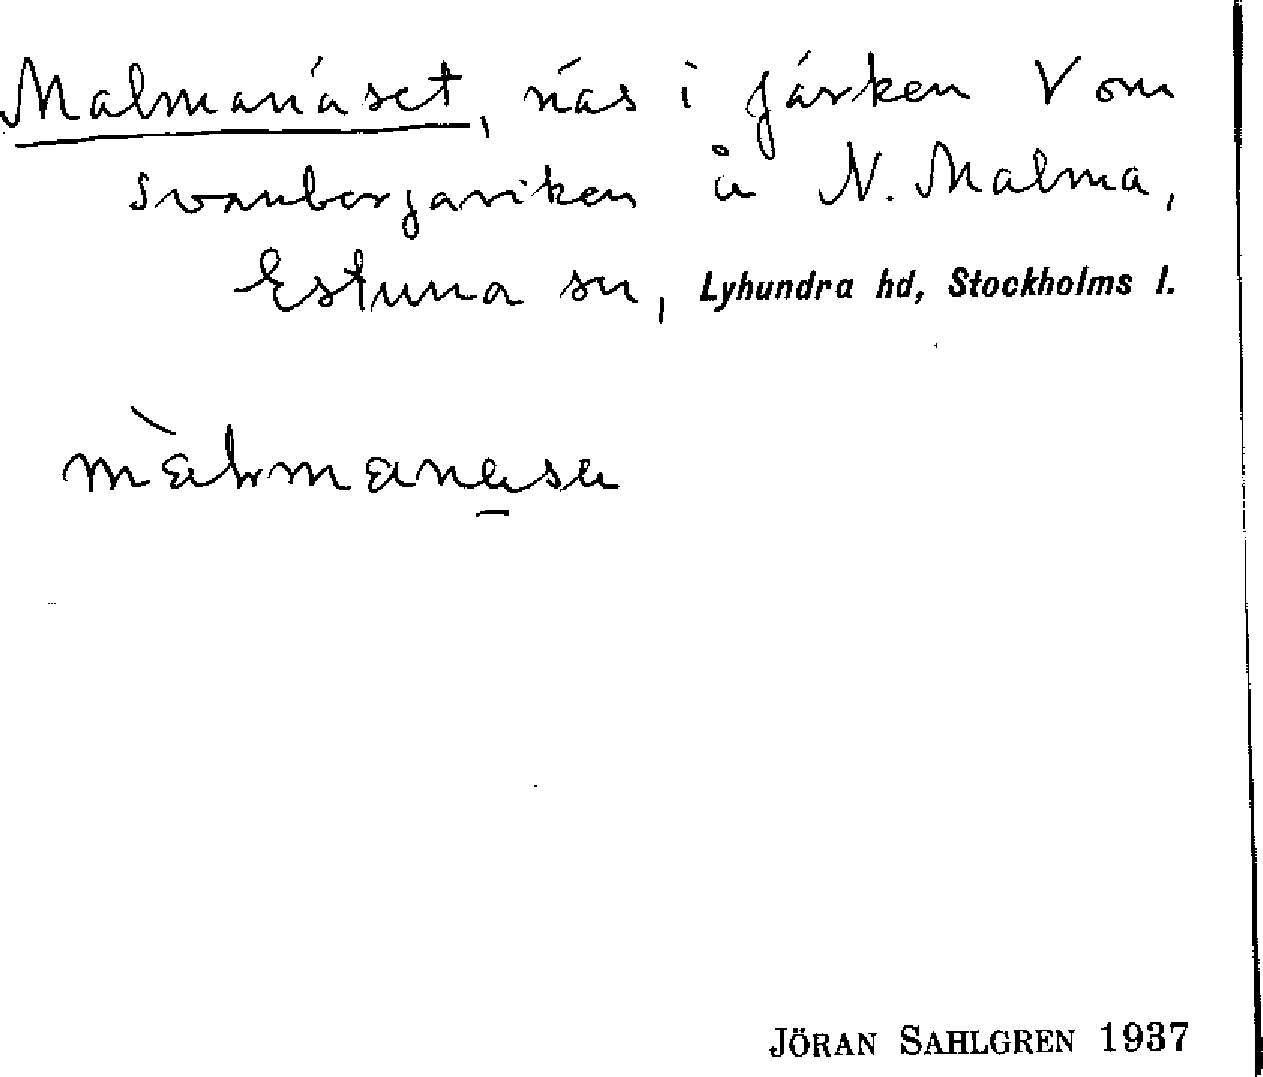 Malmanäset, näs i Järken V om
Svanbergaviken å N. Malma,
Estuna sn, Lyhundra hd, Stockholms l.
JÖRAN SAHLGREN 1937